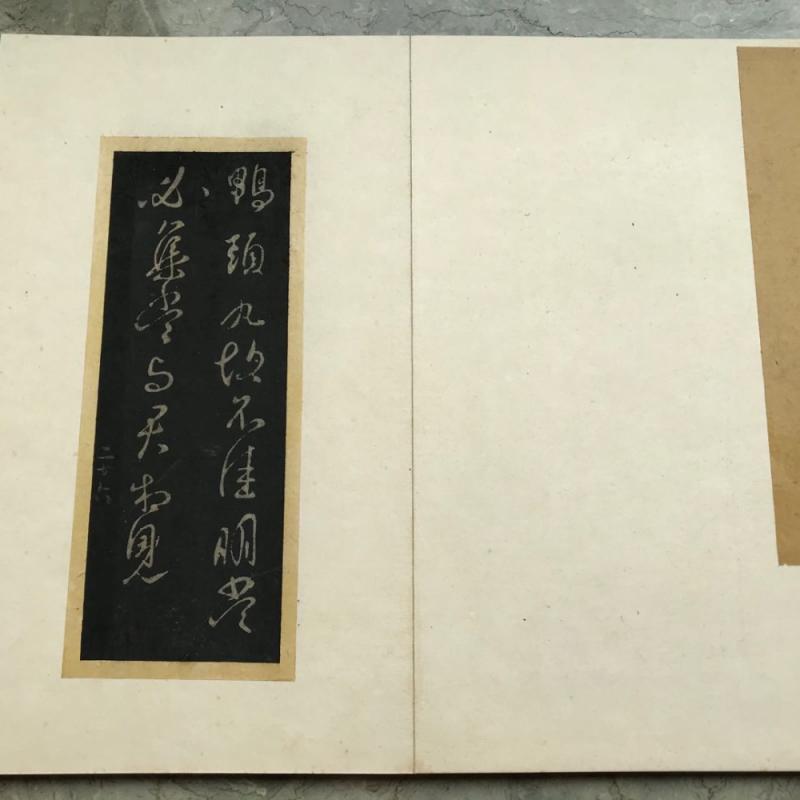 鴨頭丸故不佳明當
必集當與君相見